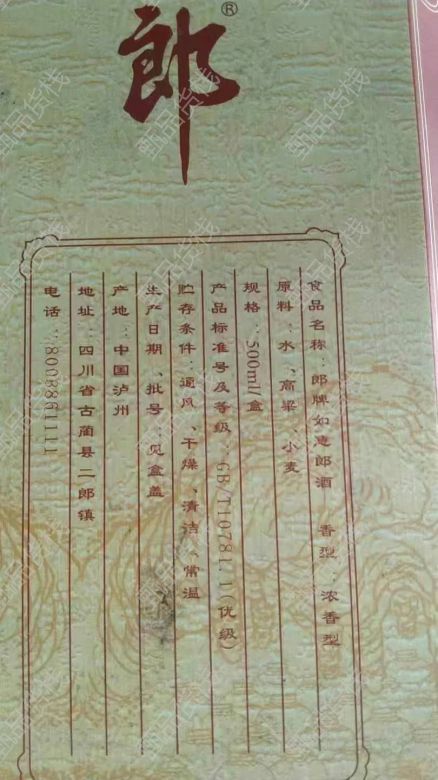 郎®
食品名称：郎牌如意郎酒 香型：浓香型
原料：水、高粱、小麦
规格：500ml/盒
产品标准号及等级：GB/T10781.1(优级)
贮存条件：通风、干燥、清洁、常温
生产日期、批号：见盒盖
产地：中国泸州
地址：四川省古蔺县二郎镇
电话：8008861111
甄品货栈